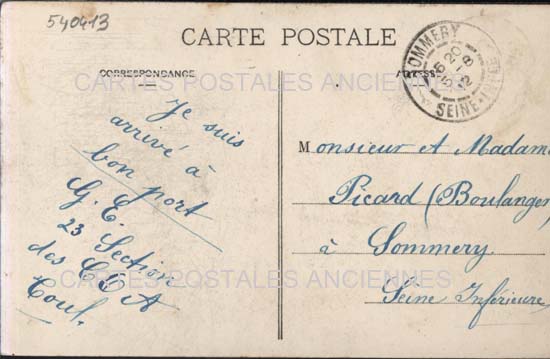 540413
CARTE POSTALE
CORRESPONDANCE
ADRESSE
CARTES POSTALES ANCIENNES
SOMMERY
SEINE-INFRE
Je suis
arrivé à
bon port
G. E.
23 Section
des C O A
Toul.
Monsieur et Madame
Picard (Boulanger)
à Sommery.
Seine Inférieure
CARTES POSTALES ANCIENNES